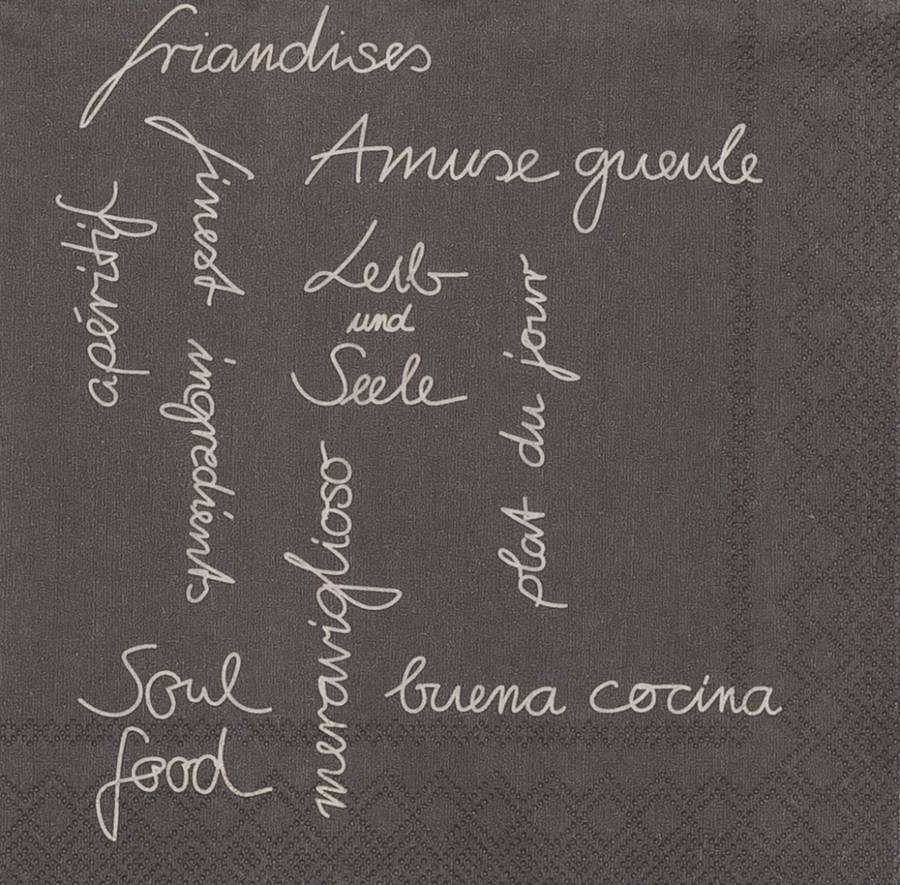 friandises
Amuse gueule
finest ingredients
apéritif
Leib
und
Seele
plat du jour
meraviglioso
Soul
food
buena cocina